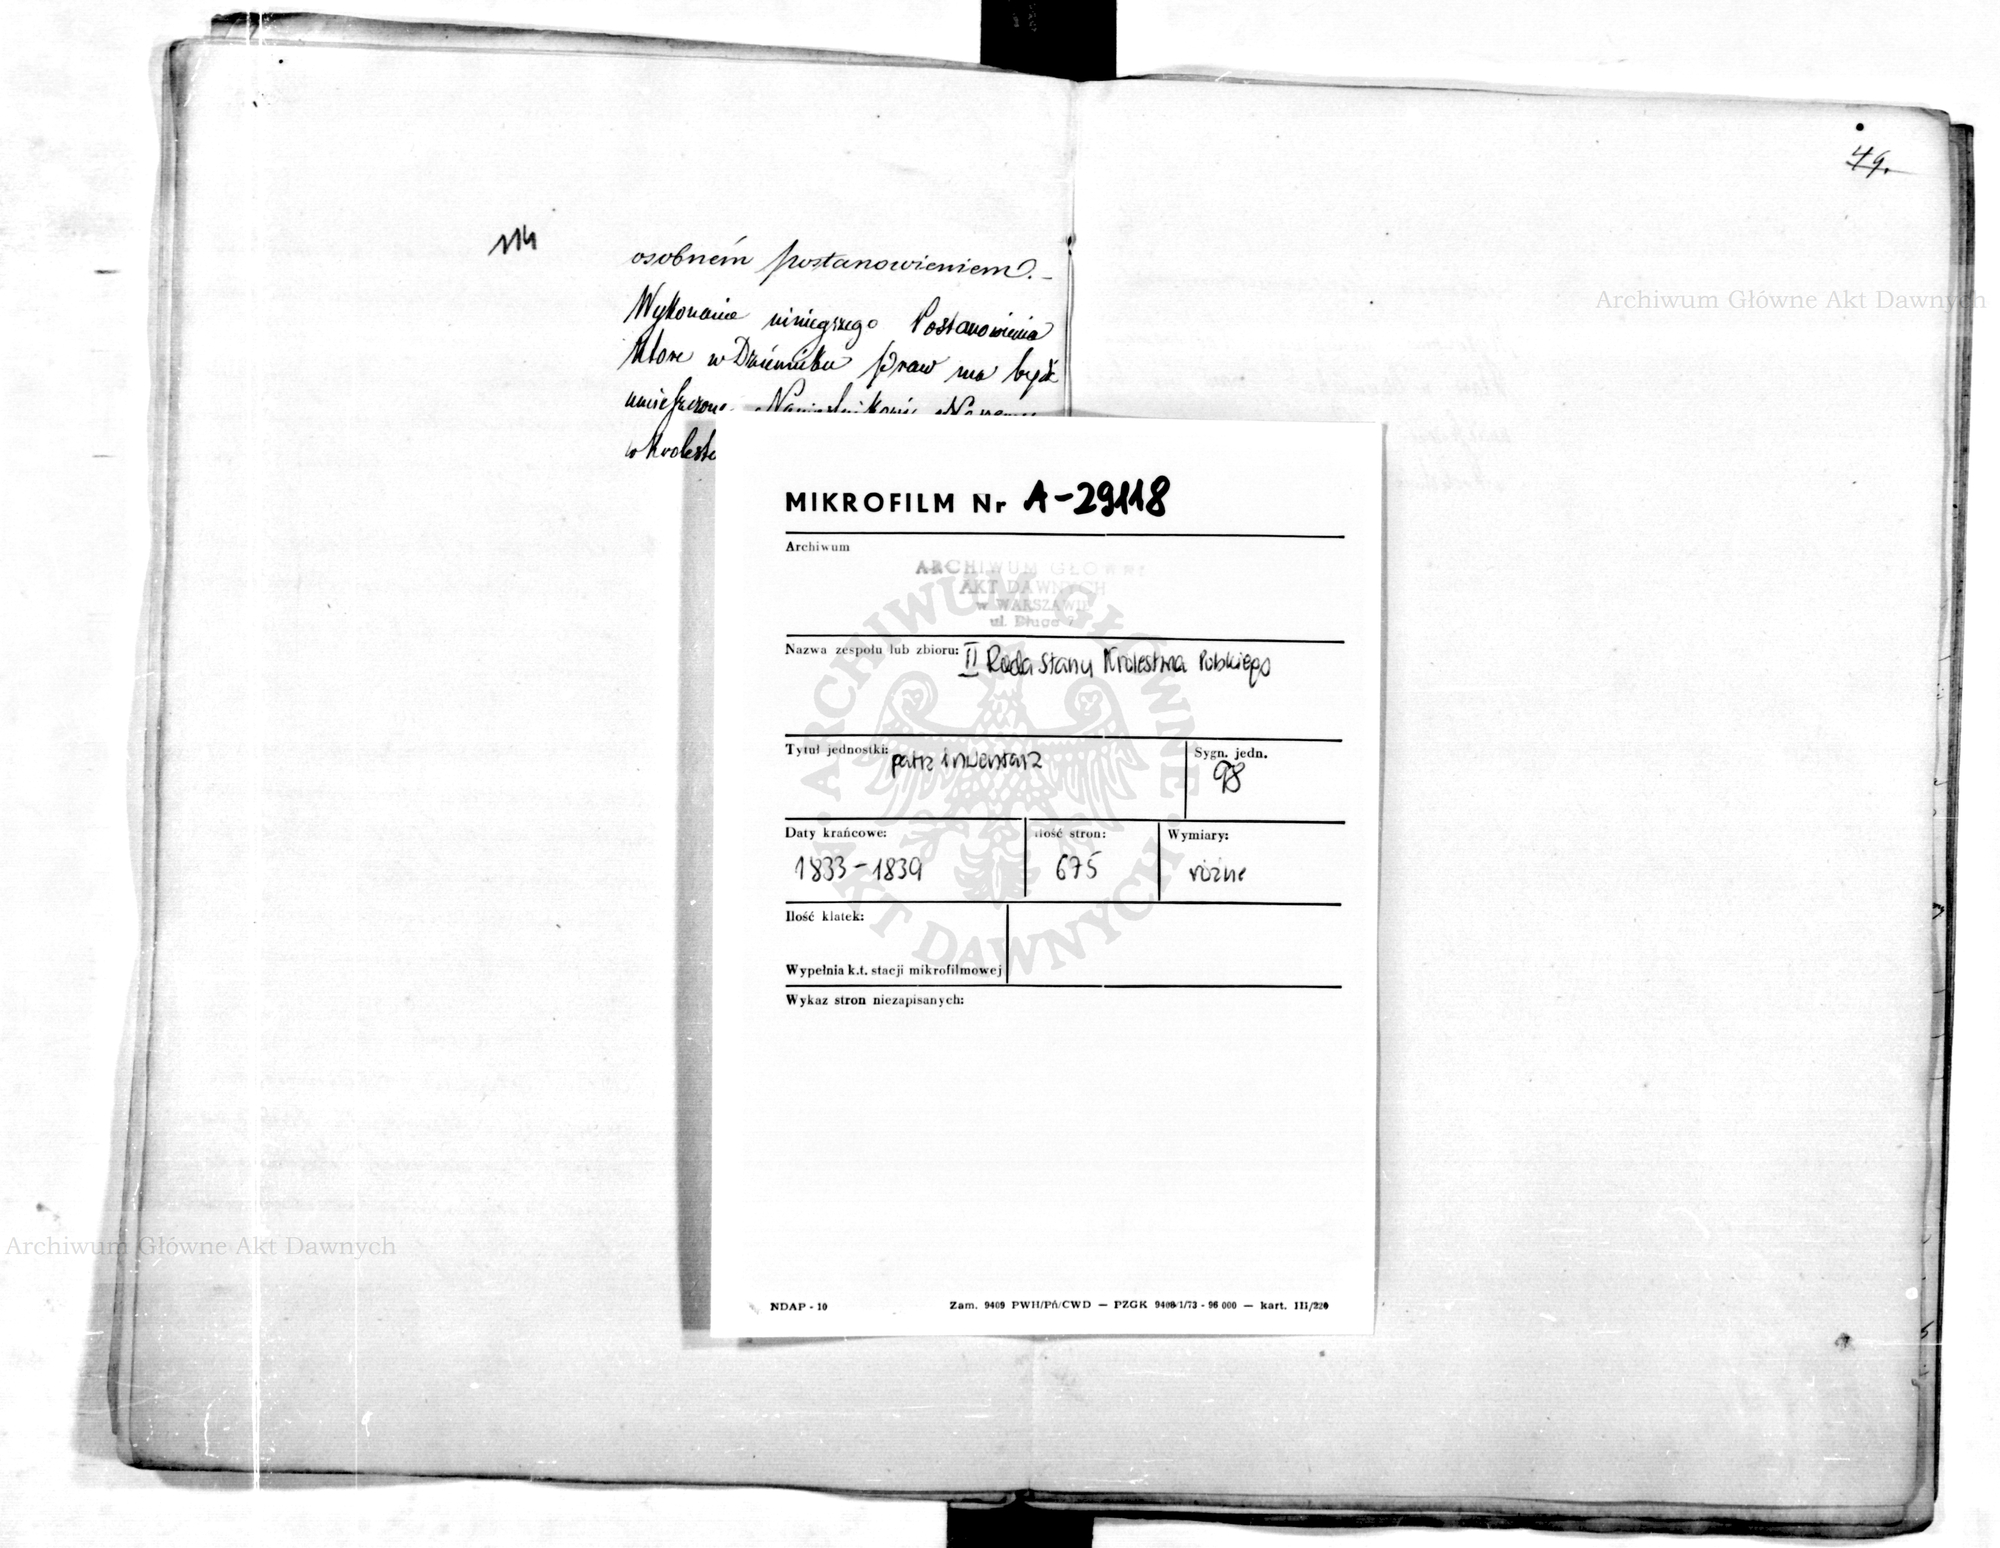 49.
114
osobném postanowieniem. –
Wykonanie niniejszego Postanowienia
które w Dzienniku praw ma bydź
umieszczone Namiestnikowi Naszemu
w Króleste
Archiwum Główne Akt Dawnych
MIKROFILM Nr A-29118
Archiwum
ARCHIWUM GŁÓWNE
AKT DAWNYCH
w WARSZAWIE
ul. Długa 7
Nazwa zespołu lub zbioru: II Rada Stanu Królestwa Polskiego
Tytuł jednostki: patrz inwentarz
Sygn. jedn.
98
Daty krańcowe:
1833-1839
Ilość stron:
675
Wymiary:
różne
Ilość klatek:
Wypełnia k.t. stacji mikrofilmowej
Wykaz stron niezapisanych:
ARCHIWUM GŁÓWNE · AKT DAWNYCH ·
Archiwum Główne Akt Dawnych
NDAP - 10
Zam. 9409 PWH/Pń/CWD — PZGK 9408/1/73 - 96 000 — kart. III/220